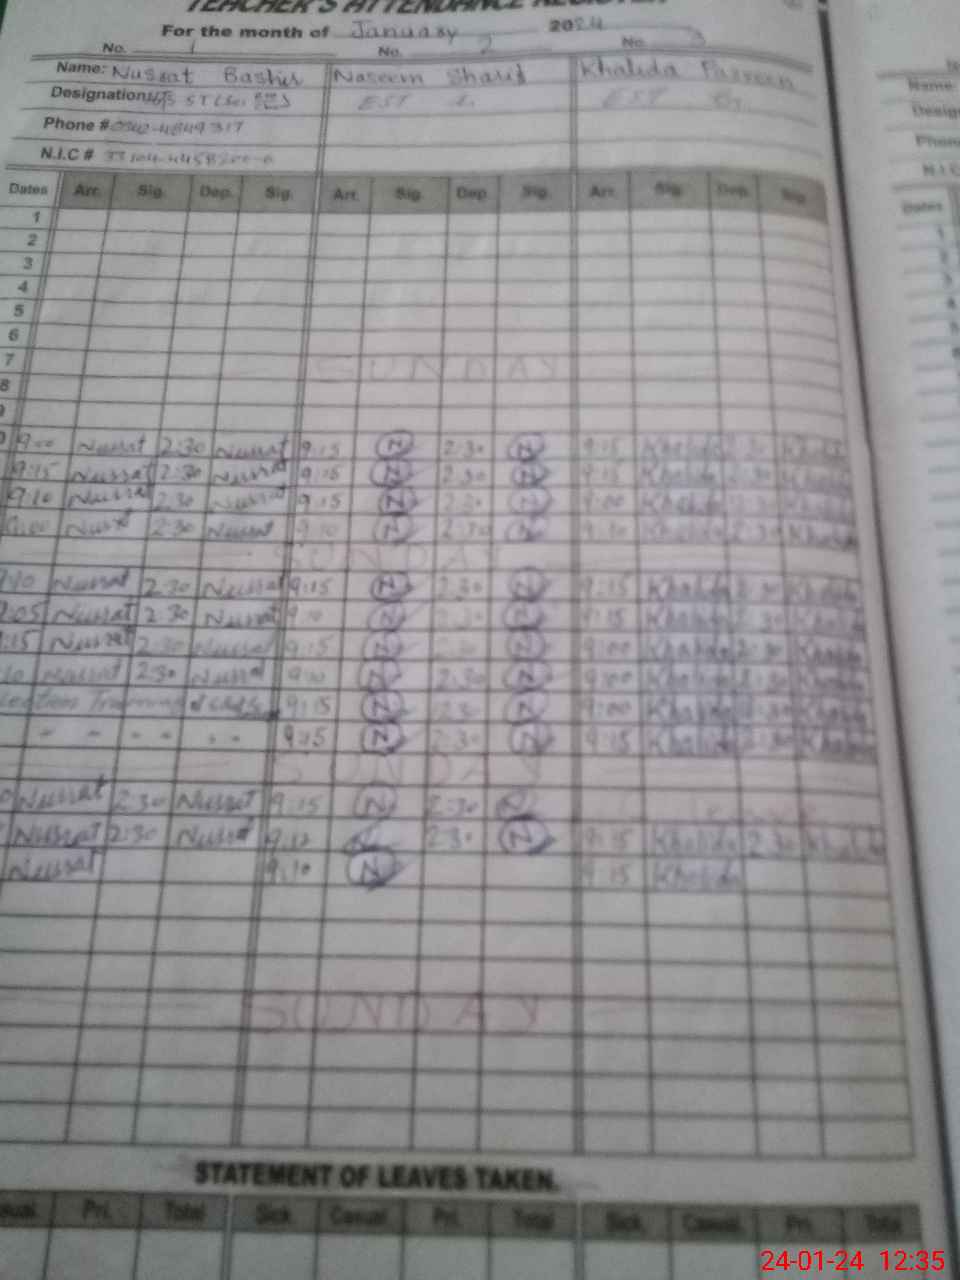 TEACHER'S ATTENDANCE REGISTER
For the month of January 2024
No. 1 No. 2 No. 3
Name: Nussat Bashir Naseem Sharif Khalida Parveen
Designation: EST EST
Phone #
N.I.C #
Dates Arr. Sig. Dep. Sig. Arr. Sig. Dep. Sig. Arr. Sig. Dep. Sig.
1
2
3
4
5
6
7 SUNDAY
8
9:00 Nussat 2:30 Nussat 9:15 N 2:30 N 9:15 Khalida 2:30 Khalida
9:15 Nussat 2:30 Nussat 9:15 N 2:30 N 9:15 Khalida 2:30 Khalida
9:10 Nussat 2:30 Nussat 9:15 N 2:30 N 9:00 Khalida 2:30 Khalida
9:00 Nussat 2:30 Nussat 9:10 N 2:30 N 9:10 Khalida 2:30 Khalida
SUNDAY
Nussat 2:30 Nussat 9:15 N 2:30 N 9:15 Khalida 2:30 Khalida
:05 Nussat 2:30 Nussat 9:10 N 2:30 N 9:15 Khalida 2:30 Khalida
:15 Nussat 2:30 Nussat 9:15 N 2:30 N 9:00 Khalida 2:30 Khalida
10 Nussat 2:30 Nussat 9:10 N 2:30 N 9:00 Khalida 2:30 Khalida
lection Training 9:15 N 2:30 N 9:00 Khalida 2:30 Khalida
9:15 N 2:30 N 9:15 Khalida 2:30 Khalida
SUNDAY
Nussat 2:30 Nussat 9:15 N 2:30 N
Nussat 2:30 Nussat 9:12 N 2:30 N 9:15 Khalida 2:30 Khalida
Nussat 9:10 N 9:15 Khalida
SUNDAY
STATEMENT OF LEAVES TAKEN.
Casual. Pri. Total Sick. Casual. Pri. Total Sick. Casual. Pri. Total
24-01-24 12:35